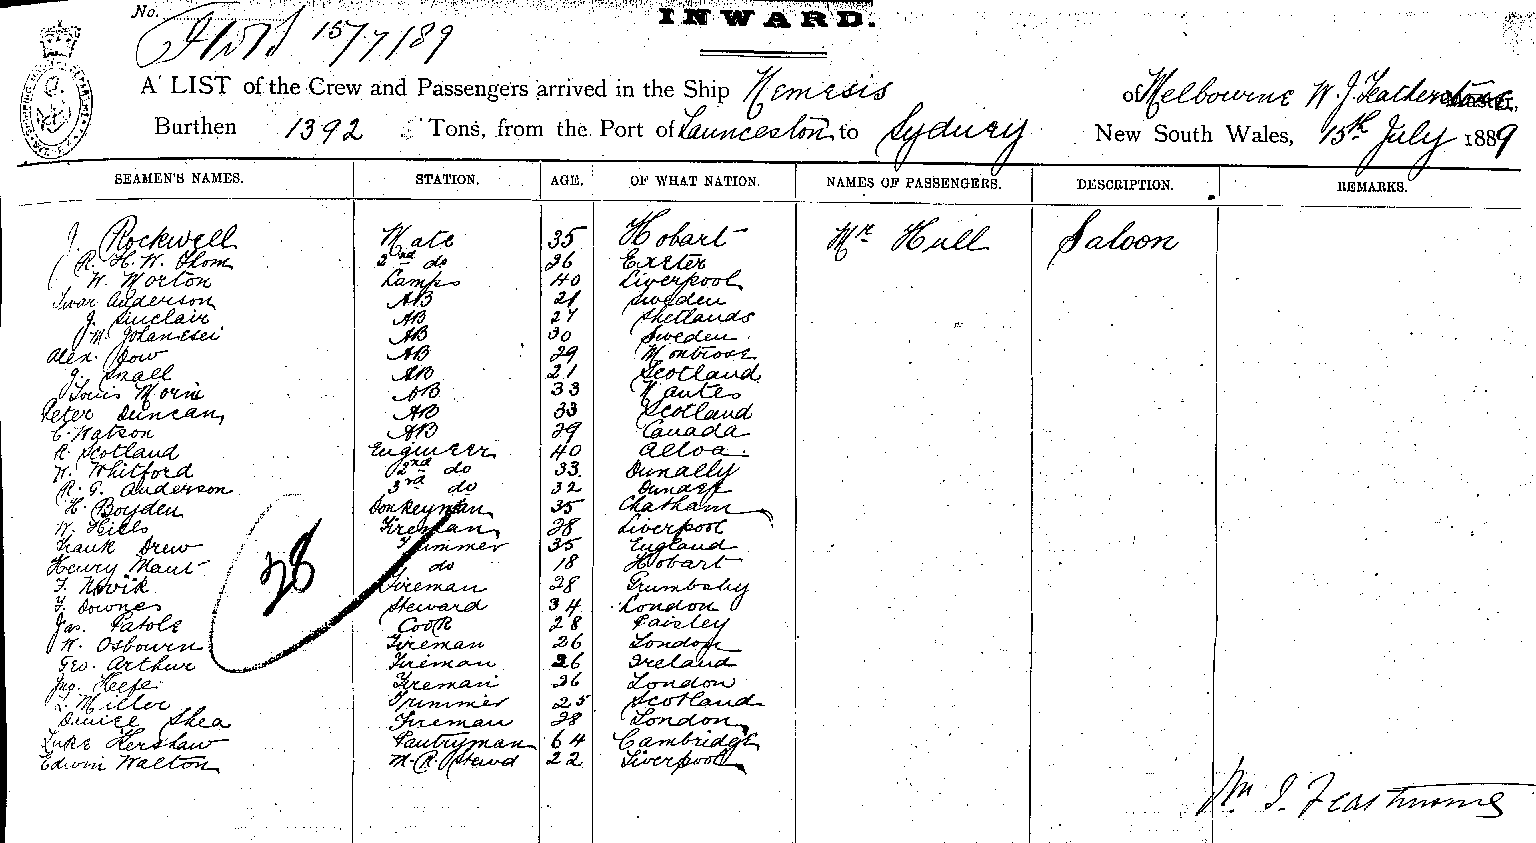 No.
INWARD.
15/7/89
A LIST of the Crew and Passengers arrived in the Ship Nemesis of Melbourne W. J. Featherstone
Burthen 1392 Tons, from the Port of Launceston to Sydney New South Wales, 15th July 1889
SEAMEN'S NAMES. STATION. AGE. OF WHAT NATION. NAMES OF PASSENGERS. DESCRIPTION. REMARKS.
J. Rockwell Mate 35 Hobart Mr Hull Saloon
R. H. W. Thom 2nd do 26 Exeter
W. Morton Lamps 40 Liverpool
Iwar Anderson AB 21 Sweden
J. Sinclair AB 27 Shetlands
M. AB 30 Sweden
Alex. Dow AB 29 Montrose
J. Small AB 21 Scotland
Louis Morin AB 33 Nantes
Peter Duncan AB 33 Scotland
C. Watson AB 29 Canada
R. Scotland Engineer 40 Alloa.
W. Whitford 2nd do 33 Dunally
R. G. Anderson 3rd do 32 Dundee
H. Boyden Donkeyman 35 Chatham
W. Hills Fireman 28 Liverpool
Frank Drew Trimmer 35 England
Henry Maut do 18 Hobart
F. Novik Fireman 28 Grumbsby
F. Downes Steward 34 London
Jas. Patole Cook 28 Paisley
W. Osbourn Fireman 26 London
Geo. Arthur Fireman 26 Ireland
Jno. Keefe Fireman 26 London
Miller Trimmer 25 Scotland
Shea Fireman 28 London
Luke Kershaw Pantryman 64 Cambridge
Edwin Walton M.R. Stewd 22 Liverpool
28
Wm